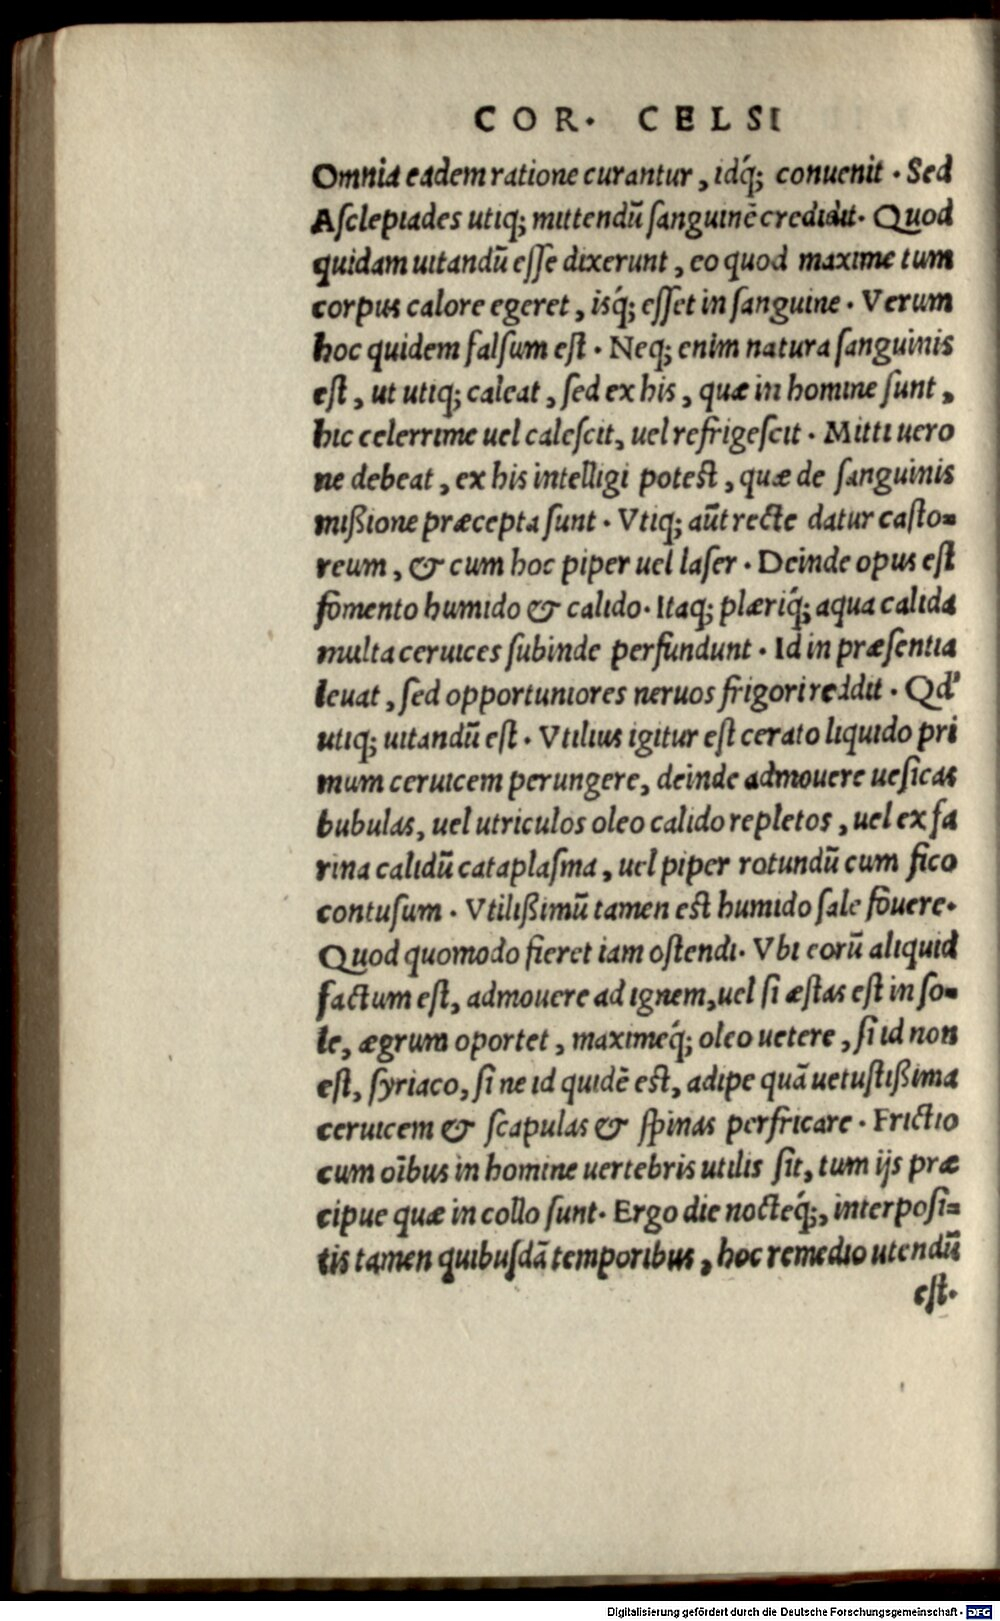 COR. CELSI
Omnia eadem ratione curantur, idq́; conuenit. Sed
Aſclepiades utiq; mittendū ſanguinē credidit. Quod
quidam uitandū eſſe dixerunt, eo quod maxime tum
corpus calore egeret, isq́; eſſet in ſanguine. Verum
hoc quidem falſum eſt. Neq; enim natura ſanguinis
eſt, ut utiq; caleat, ſed ex his, quæ in homine ſunt,
hic celerrime uel caleſcit, uel refrigeſcit. Mitti uero
ne debeat, ex his intelligi potest, quæ de ſanguinis
mißione præcepta ſunt. Vtiq; aūt recte datur caſto=
reum, & cum hoc piper uel laſer. Deinde opus eſt
fomento humido & calido. Itaq; plæriq́; aqua calida
multa ceruices ſubinde perfundunt. Id in præſentia
leuat, ſed opportuniores neruos frigori reddit. Qd'
utiq; uitandū eſt. Vtilius igitur eſt cerato liquido pri
mum ceruicem perungere, deinde admouere ueſicas
bubulas, uel utriculos oleo calido repletos, uel ex fa
rina calidū cataplaſma, uel piper rotundū cum fico
contuſum. Vtilißimū tamen est humido ſale fouere.
Quod quomodo fieret iam oſtendi. Vbi eorū aliquid
factum eſt, admouere ad ignem, uel ſi æſtas eſt in ſo=
le, ægrum oportet, maximeq́; oleo uetere, ſi id non
eſt, ſyriaco, ſi ne id quidē est, adipe quā uetuſtißima
ceruicem & ſcapulas & ſpinas perfricare. Frictio
cum oībus in homine uertebris utilis ſit, tum ijs præ
cipue quæ in collo ſunt. Ergo die nocteq́;, interpoſi=
tis tamen quibuſdā temporibus, hoc remedio utendū
eſt.
Digitalisierung gefördert durch die Deutsche Forschungsgemeinschaft - DFG